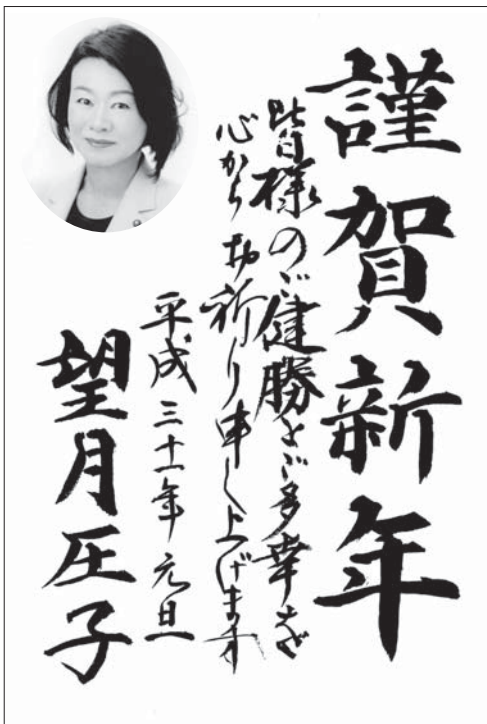 謹賀新年
皆様のご健勝とご多幸を
心からお祈り申し上げます
平成三十一年元旦
望月圧子